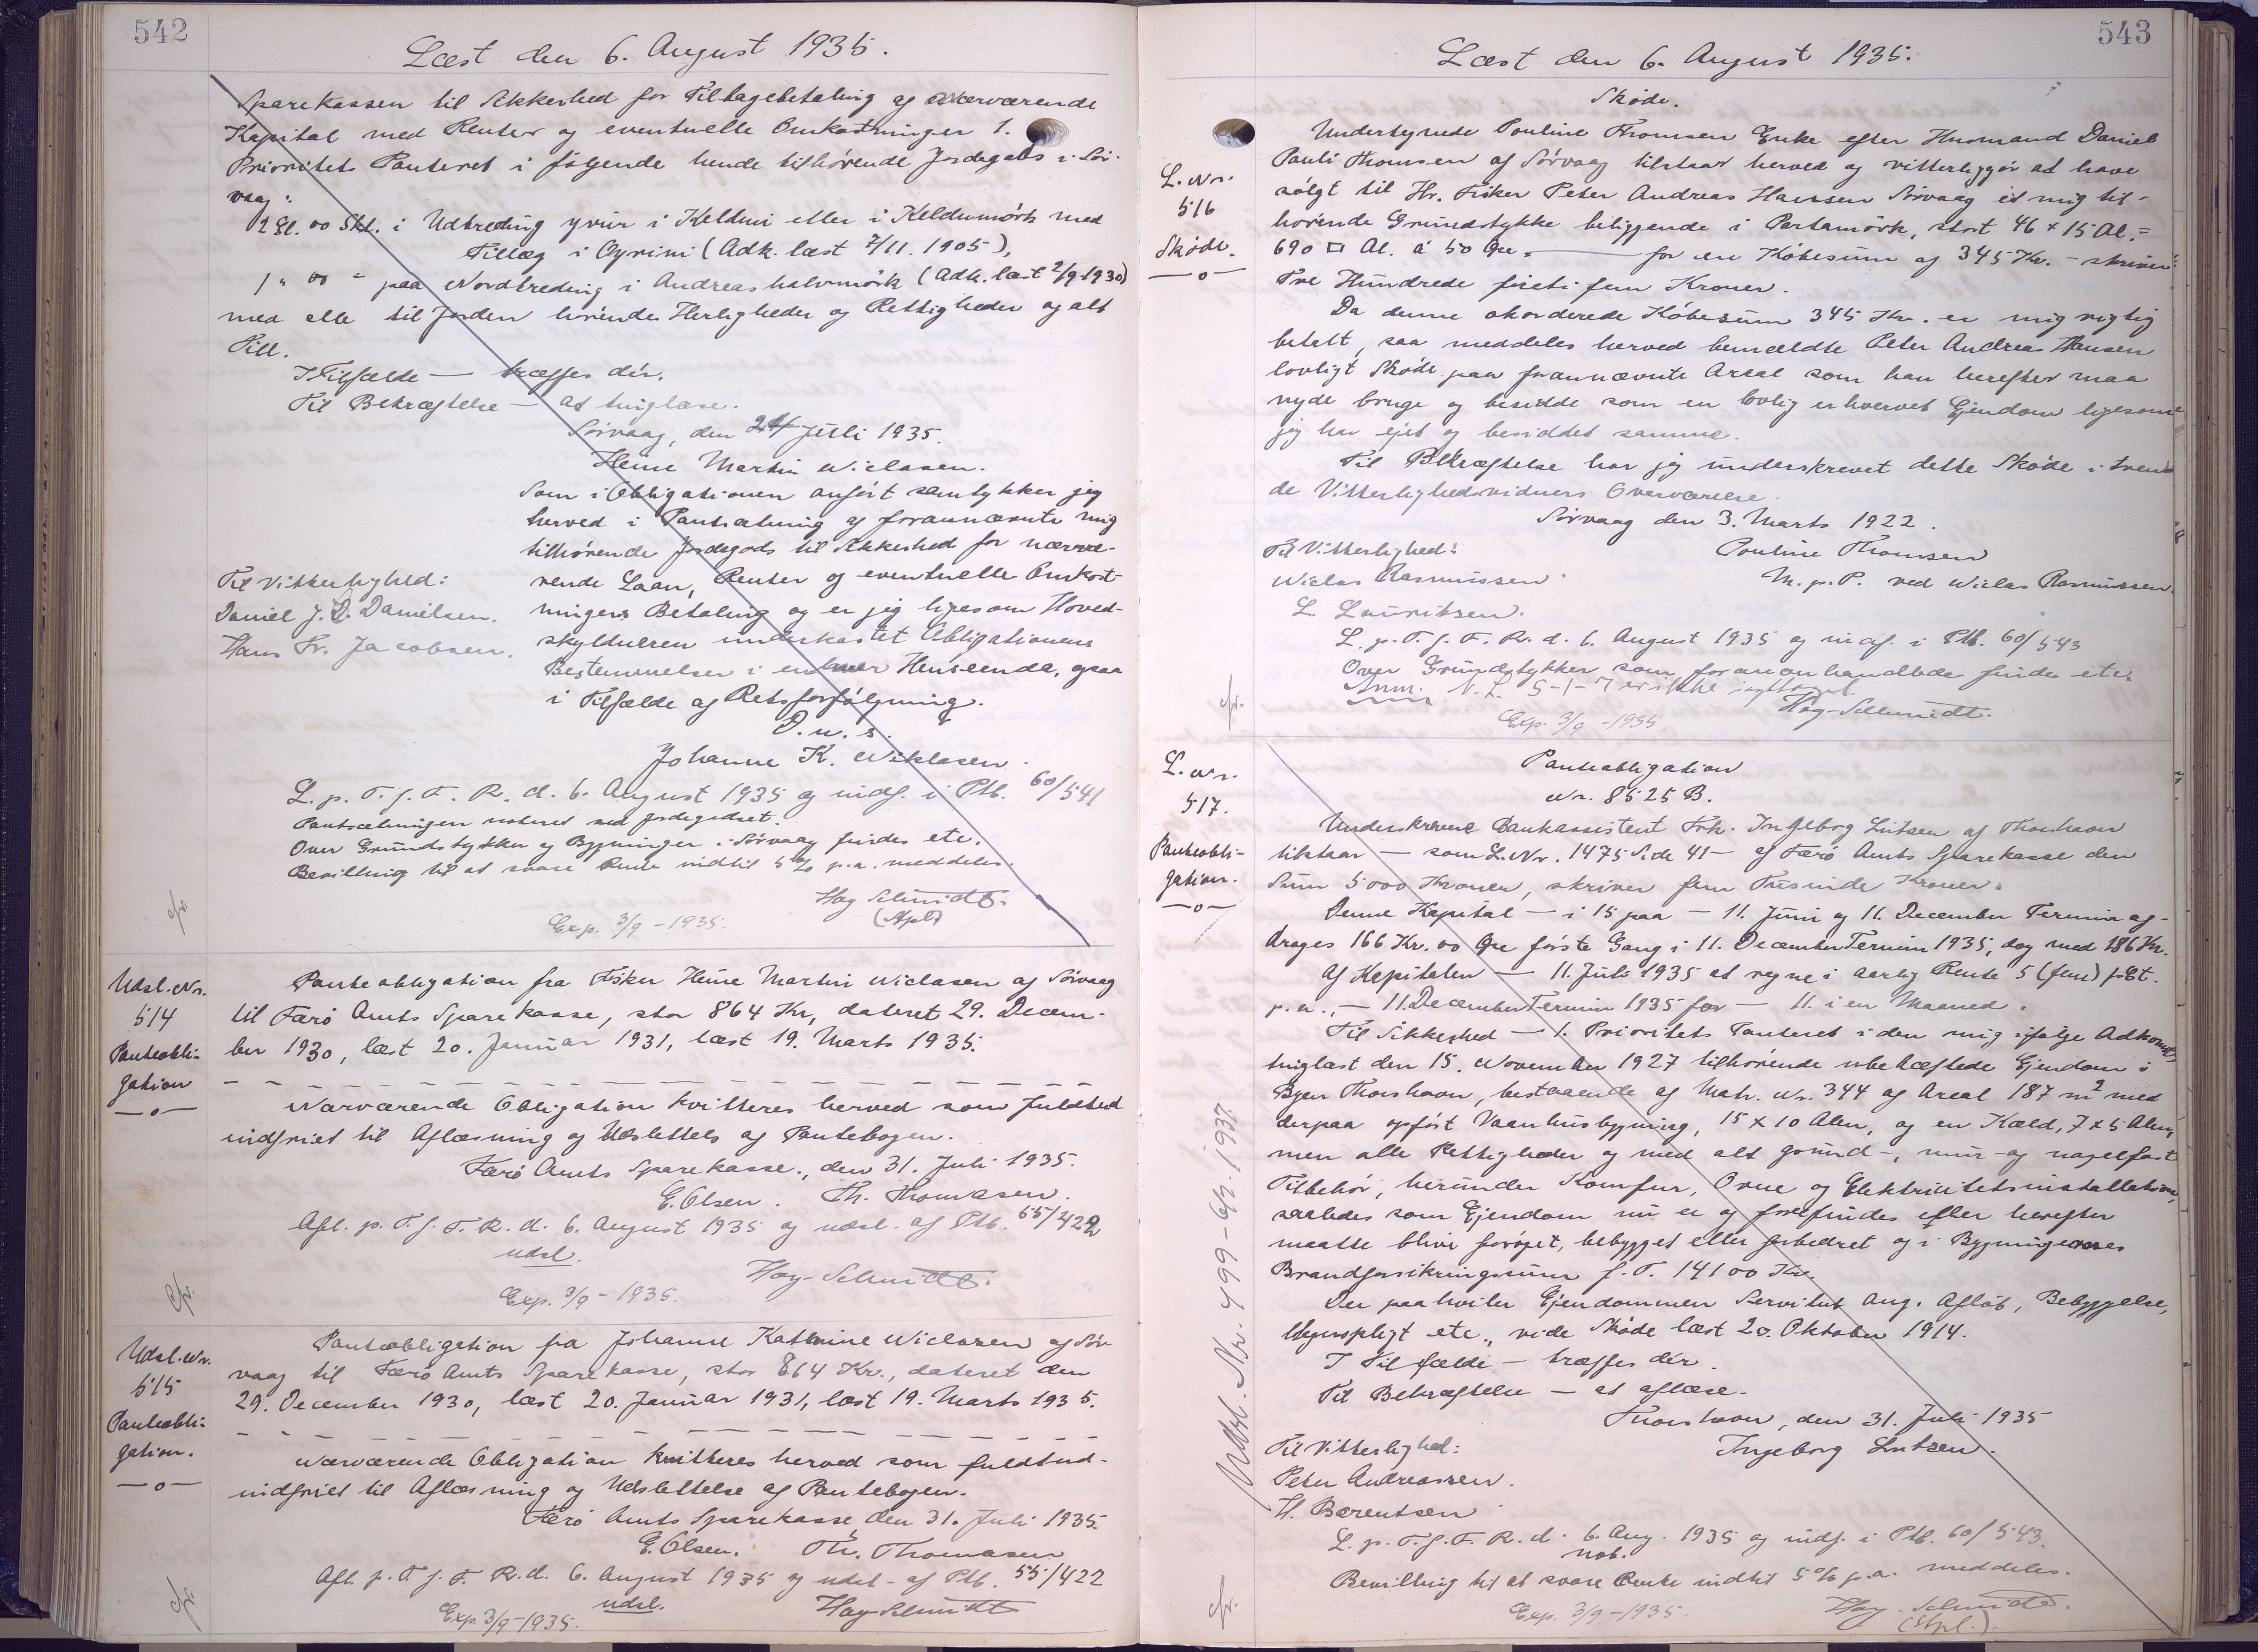 542
Læst den 6. August 1935.
Sparekassen til Sikkerhed for Tilbagebetaling af nærværende
Kapital med Renter og eventuelle Omkostninger 1.
Prioritets Panteret i følgende hende tilhørende Jordegods i Sør-
vaag:
2 Gl. 00 Skl. i Udtreding yvur i Kelduni eller i Keldumørk med
Tillæg i Oyrini (Adk. læst 7/11. 1905),
1 " 00 " paa Nordtreding i Andreashalvmørk (Adk. læst 2/9 1930)
med alle til Jorden hørende Herligheder og Rettigheder og alt
Till.
I Tilfælde — træffes dér.
Til Bekræftelse — at tinglæse.
Sørvaag, den 24 Juli 1935.
Heine Martin Niclasen.
Som i Obligationen anført samtykker jeg
herved i Pantsætning af forannævnte mig
tilhørende Jordegods til Sikkerhed for nærvæ-
rende Laan, Renter og eventuelle Omkost-
ningers Betaling og er jeg ligesom Hoved-
skyldneren underkastet Obligationens
Bestemmelser i enhver Henseende, ogsaa
i Tilfælde af Retsforfølgning.
D. u. s.
Johanne K. Niklasen.
Til Vitterlighed:
Daniel J. D. Danielsen.
Hans Fr. Jacobsen.
L. p. T. f. F. R. d. 6. August 1935 og indf. i Ptb. 60/541
Pantsætningen noteret ved Jordegodset.
Over Grundstykker og Bygninger i Sørvaag findes etc.
Bevilling til at svare Rente indtil 5 % p.a. meddeles.
Hay Schmidt.
(Stpl)
Exp. 3/9 - 1935.
Udsl. Nr.
514
Panteobli-
gation
—o—
Panteobligation fra Fisker Heine Martin Niclasen af Sørvaag
til Færø Amts Sparekasse, stor 864 Kr, dateret 29. Decem-
ber 1930, læst 20. Januar 1931, læst 19. Marts 1935.
Nærværende Obligation kvitteres herved som fuldtud
indfriet til Aflæsning og Udslettels af Pantebogen.
Færø Amts Sparekasse., den 31. Juli 1935.
E. Olsen. Th. Thomasen.
Afl. p. T. f. F. R. d. 6. August 1935 og udsl. af Ptb. 55/422
udsl.
Hay-Schmidt.
Exp. 3/9 - 1935.
Udsl. Nr.
515
Panteobli-
gation.
—o—
Panteobligation fra Johanne Kathrine Niclasen af Sør-
vaag til Færø Amts Sparekasse, stor 864 Kr., dateret den
29. December 1930, læst 20. Januar 1931, læst 19. Marts 1935.
Nærværende Obligation kvitteres herved som fuldtud-
indfriet til Aflæsning og Udslettelse af Pantebogen.
Færø Amts Sparekasse, den 31. Juli 1935.
E. Olsen. Th. Thomasen
Afl. p. T. f. F. R. d. 6. August 1935 og udsl. af Ptb. 55/422
udsl.
Hay-Schmidt
Exp. 3/9 - 1935.
543
Læst den 6. August 1935.
L. Nr.
516
Skøde.
—o—
Skøde.
Undertegnede Pouline Thomsen Enke efter Husmand Daniel
Pauli Thomsen af Sørvaag tilstaar herved og vitterliggør at have
solgt til Hr. Fisker Peter Andreas Hansen Sørvaag et mig til-
hørende Grundstykke beliggende i Partamørk, stort 46 x 15 Al. =
690 □ Al. á 50 Øre — for en Købesum af 345 Kr. - skriver
Tre Hundrede fireti fem Kroner.
Da denne akorderede Købesum 345 Kr. er mig rigtig
betalt, saa meddeles herved bemeldte Peter Andreas Hansen
lovligt Skøde paa forannævnte Areal som han herefter maa
nyde bruge og besidde som en lovlig erhvervet Ejendom ligesom
jeg har ejet og besiddet samme.
Til Bekræftelse har jeg underskrevet dette Skøde i tven
de Vitterlighedsvidners Overværelse.
Sørvaag den 3. Marts 1922.
Til Vitterlighed:
Pouline Thomsen
Niclas Rasmussen
M. p. P. ved Niclas Rasmussen.
L. Lauritsen.
L. p. T. f. F. R. d. 6. August 1935 og indf. i Ptb. 60/543
Over Grundstykker som foranomhandlede findes etc.
Anm. N. L. 5-1-7 er ikke iagttaget.
Hay-Schmidt.
Exp. 3/9 - 1935
L. Nr.
517.
Panteobli-
gation.
—o—
Panteobligation
Nr. 8525 B.
Underskrevne Bankassistent Frk. Ingeborg Lützen af Thorshavn
tilstaar — som L. Nr. 1475 Side 41 — af Færø Amts Sparekasse den
Sum 5000 Kroner, skriver fem Tusinde Kroner.
Denne Kapital — i 15 paa — 11. Juni og 11. December Termin af-
drages 166 Kr. 00 Øre første Gang i 11. December Termin 1935, dog med 186 Kr.
Af Kapitalen — 11. Juli 1935 at regne i aarlig Rente 5 (fem) pCt.
p. a., — 11. December Termin 1935 for — 11. i en Maaned.
Til Sikkerhed — 1. Prioritets Panteret i den mig ifølge Adkomst
tinglæst den 15. November 1927 tilhørende ubehæftede Ejendom i
Byen Thorshavn, bestaaende af Matr. Nr. 344 af Areal 187 m² med
derpaa opført Vaanhusbygning, 15 x 10 Alen, og en Kæld, 7 x 5 Alen,
men alle Rettigheder og med alt grund-, mur- og nagelfast
Tilbehør, herunder Komfur, Ovne og Elektricitetsinstallation,
saaledes som Ejendom nu er og forefindes eller herefter
maatte blive forøget, bebygget eller forbedret og i Bygningernes
Brandforsikringssum f. T. 14100 Kr.
Der paahviler Ejendommen Servitut ang. Afløb, Bebyggelse,
Hegnspligt etc., vide Skøde læst 20. Oktober 1914.
I Tilfælde — træffes dér.
Til Bekræftelse — at aflæse.
Thorshavn, den 31. Juli 1935
Til Vitterlighed:
Ingeborg Lützen.
Peter Andreassen.
H. Bærentsen
L. p. T. f. F. R. d. 6. Aug. 1935 og indf. i Ptb. 60/543.
not.
Bevilling til at svare Rente indtil 5 % p.a. meddeles.
Hay-Schmidt.
(Stpl.).
Exp. 3/9 - 1935.
Udsl. Nr. 499 - 6/9. 1937.